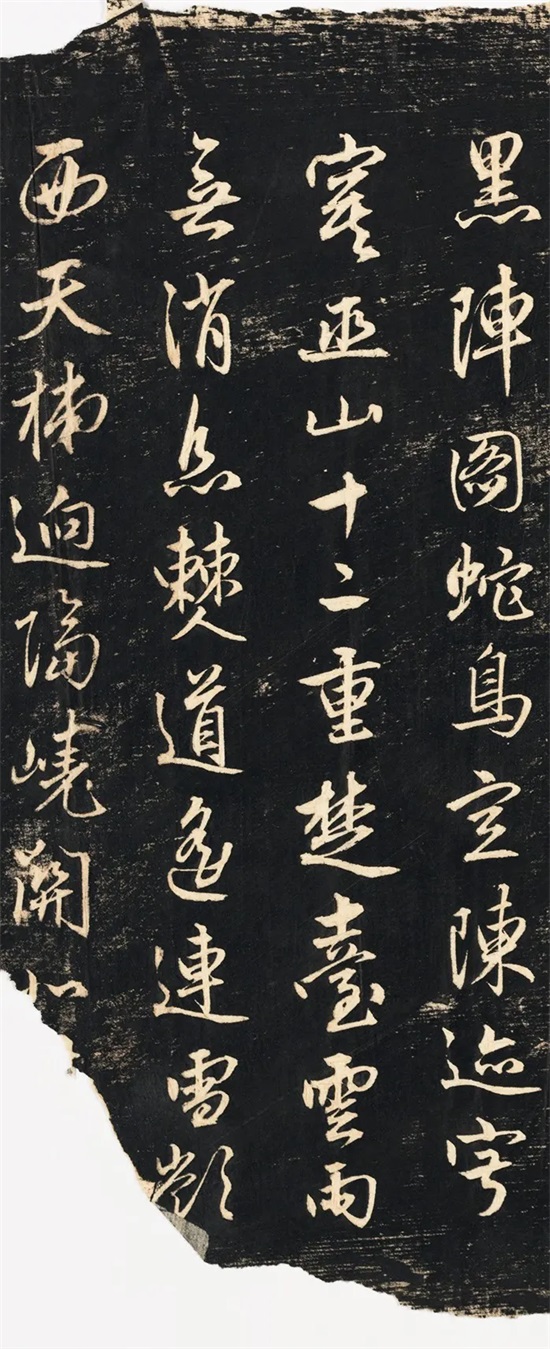 黑陣圖蛇鳥空陳迹寂
寞巫山十二重楚臺雲雨
無消息僰道遙連雪嶺
西天梯迥隔嶢關